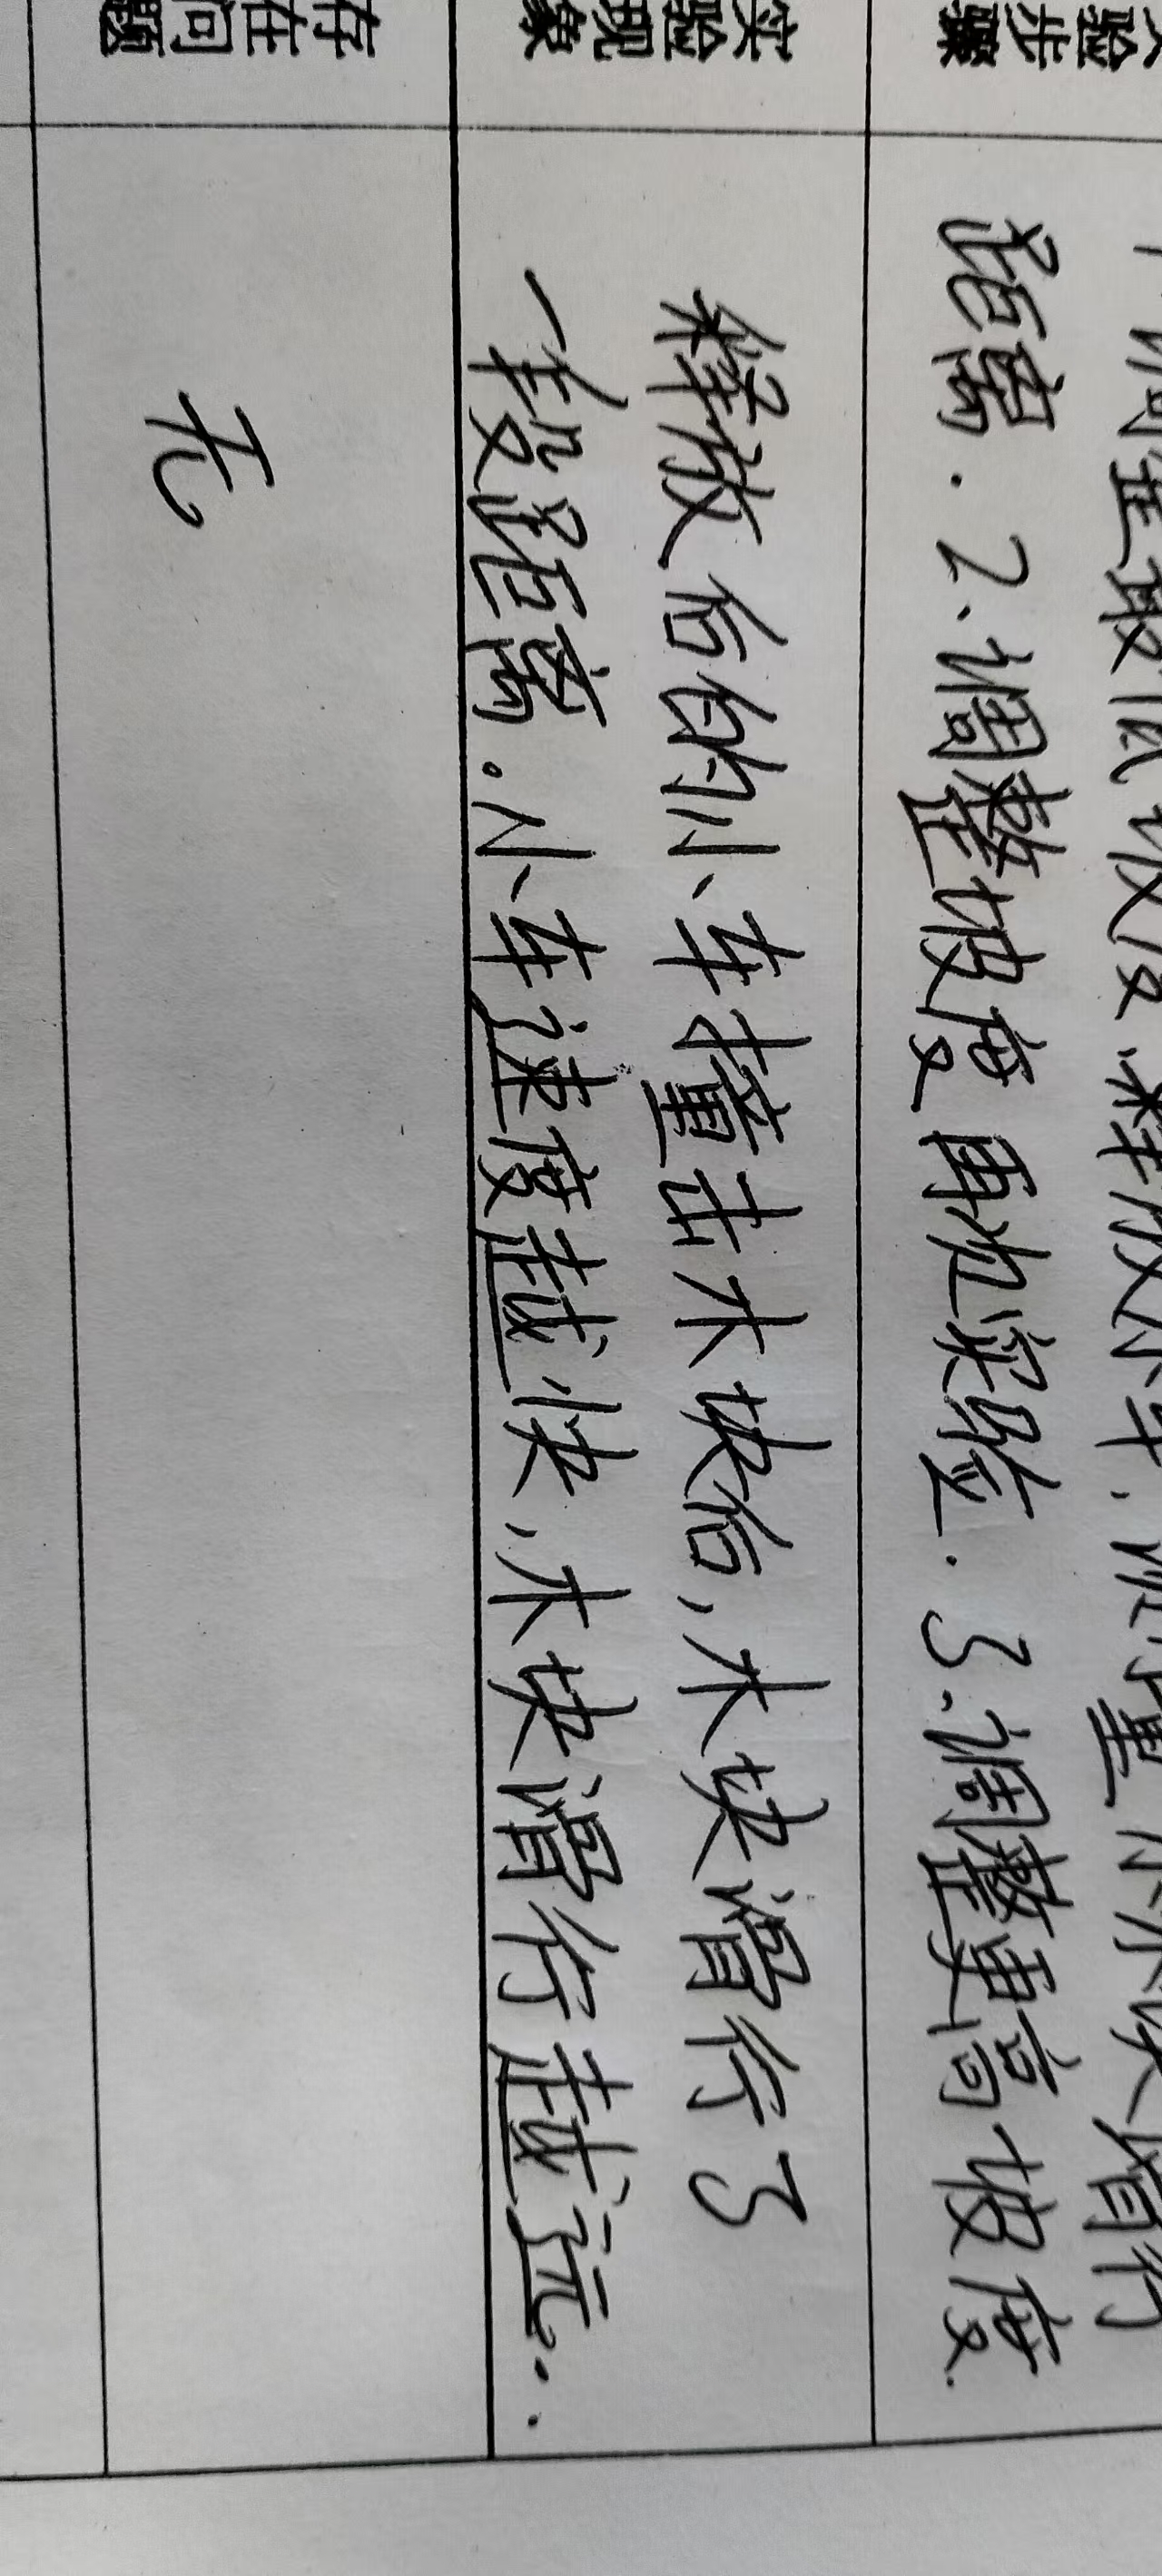 验步骤
1.调至最低坡度.释放小车,测量木块滑行
距离.2.调整坡度再次实验.3.调整更高坡度.
实验现象
释放后的小车撞击木块后,木块滑行了
一段距离.小车速度越快,木块滑行越远..
存在问题
无